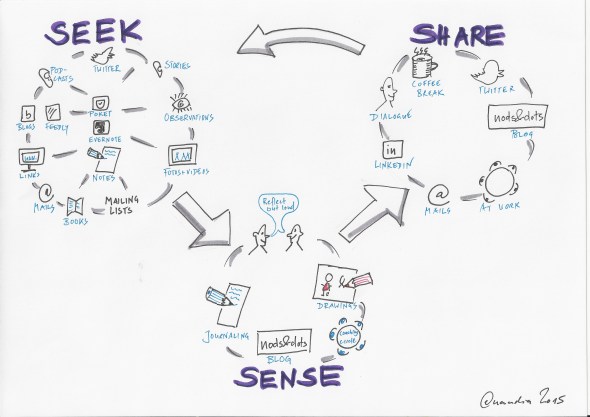 SEEK
TWITTER
STORIES
POD-
CASTS
OBSERVATIONS
POKET
EVERNOTE
b
BLOGS
FEEDLY
LINKS
NOTES
FOTOS+VIDEOS
@
MAILS
BOOKS
MAILING
LISTS
SHARE
COFFEE
BREAK
TWITTER
DIALOGUE
nods&dots
BLOG
in
LINKEDIN
@
MAILS
AT WORK
Reflect
out loud
JOURNALING
DRAWINGS
nods&dots
BLOG
Coaching
Circle
SENSE
2015